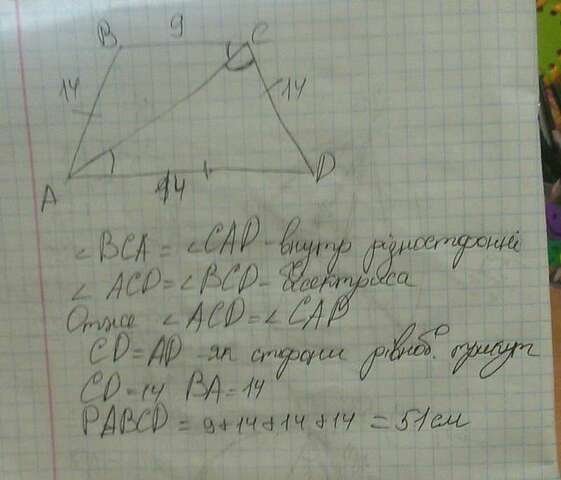 B 9 C
14 14
A 14 D
∠BCA = ∠CAD - внутр різносторонні
∠ ACD = ∠BCD - бісектриса
Отже ∠ACD = ∠CAD
CD = AD - як сторони рівноб. трикут
CD = 14 BA = 14
PABCD = 9 + 14 + 14 + 14 = 51 см